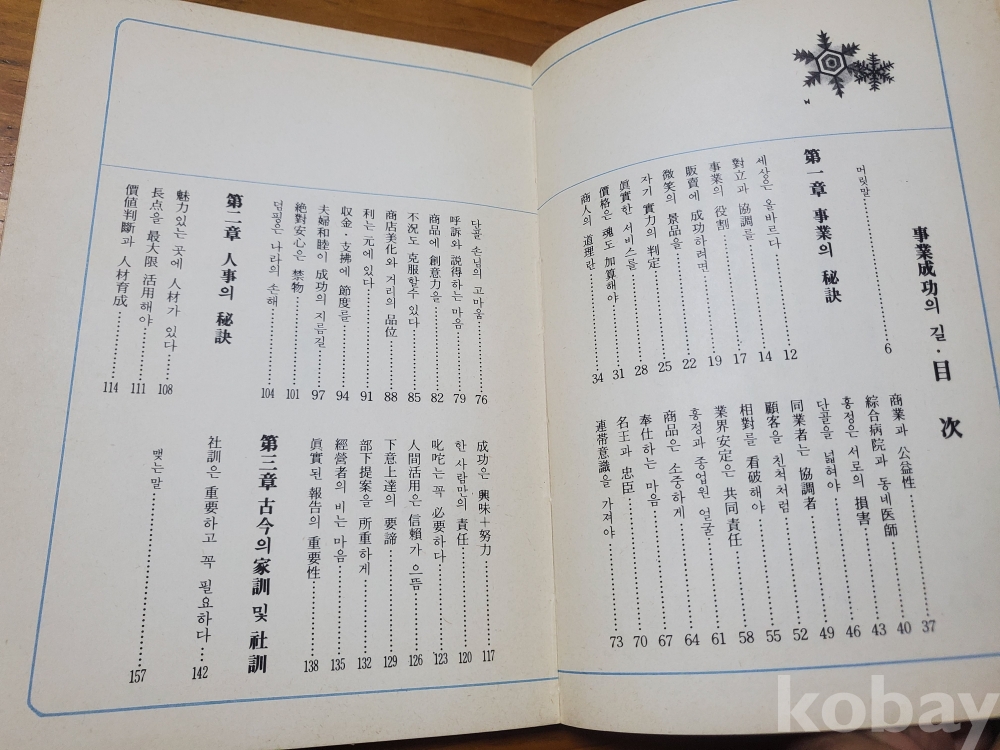 事業成功의 길·目次
머릿말……6
第一章 事業의 秘訣
세상은 올바르다……12
對立과 協調를……14
事業의 役割……17
販賣에 成功하려면……19
微笑의 景品을……22
자기 實力의 判定……25
眞實한 서비스를……28
價格은 魂도 加算해야……31
商人의 道理란……34
商業과 公益性……37
綜合病院과 동네医師……40
흥정은 서로의 損害……43
단골을 넓혀야……46
同業者는 協調者……49
顧客을 친척처럼……52
相對를 看破해야……55
業界安定은 共同責任……58
흥정과 종업원 얼굴……61
商品은 소중하게……64
奉仕하는 마음……67
名王과 忠臣……70
連帯意識을 가져야……73
단골 손님의 고마움……76
呼訴와 說得하는 마음……79
商品에 創意力을……82
不況도 克服할수 있다……85
商店美化와 거리의 品位……88
利는 元에 있다……91
収金·支拂에 節度를……94
夫婦和睦이 成功의 지름길……97
絶對安心은 禁物……101
덤핑은 나라의 손해……104
第二章 人事의 秘訣
魅力있는 곳에 人材가 있다……108
長点을 最大限 活用해야……111
價値判斷과 人材育成……114
成功은 興味+努力……117
한 사람만의 責任……120
叱咤는 꼭 必要하다……123
人間活用은 信賴가 으뜸……126
下意上達의 要諦……129
部下提案을 所重하게……132
經營者의 비는 마음……135
眞實된 報告의 重要性……138
第三章 古今의 家訓 및 社訓
社訓은 重要하고 꼭 필요하다……142
맺는말……157
kobay